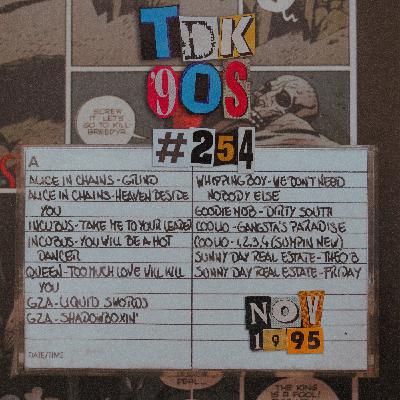 TDK
'90S
#254
SCREW IT LET'S GO TO KILL BREEDYA.
A
ALICE IN CHAINS - GRIND
ALICE IN CHAINS - HEAVEN BESIDE
YOU
INCUBUS - TAKE ME TO YOUR LEADER
INCUBUS - YOU WILL BE A HOT
DANCER
QUEEN - TOO MUCH LOVE WILL KILL
YOU
GZA - LIQUID SWORDS
GZA - SHADOWBOXIN'
WHIPPING BOY - WE DON'T NEED
NOBODY ELSE
GOODIE MOB - DIRTY SOUTH
COOLIO - GANGSTA'S PARADISE
COOLIO - 1,2,3,4 (SUMPIN NEW)
SUNNY DAY REAL ESTATE - THEO B
SUNNY DAY REAL ESTATE - FRIDAY
NOV
1995
DATE/TIME
DEAL...
THE KING
IS A FOOL!